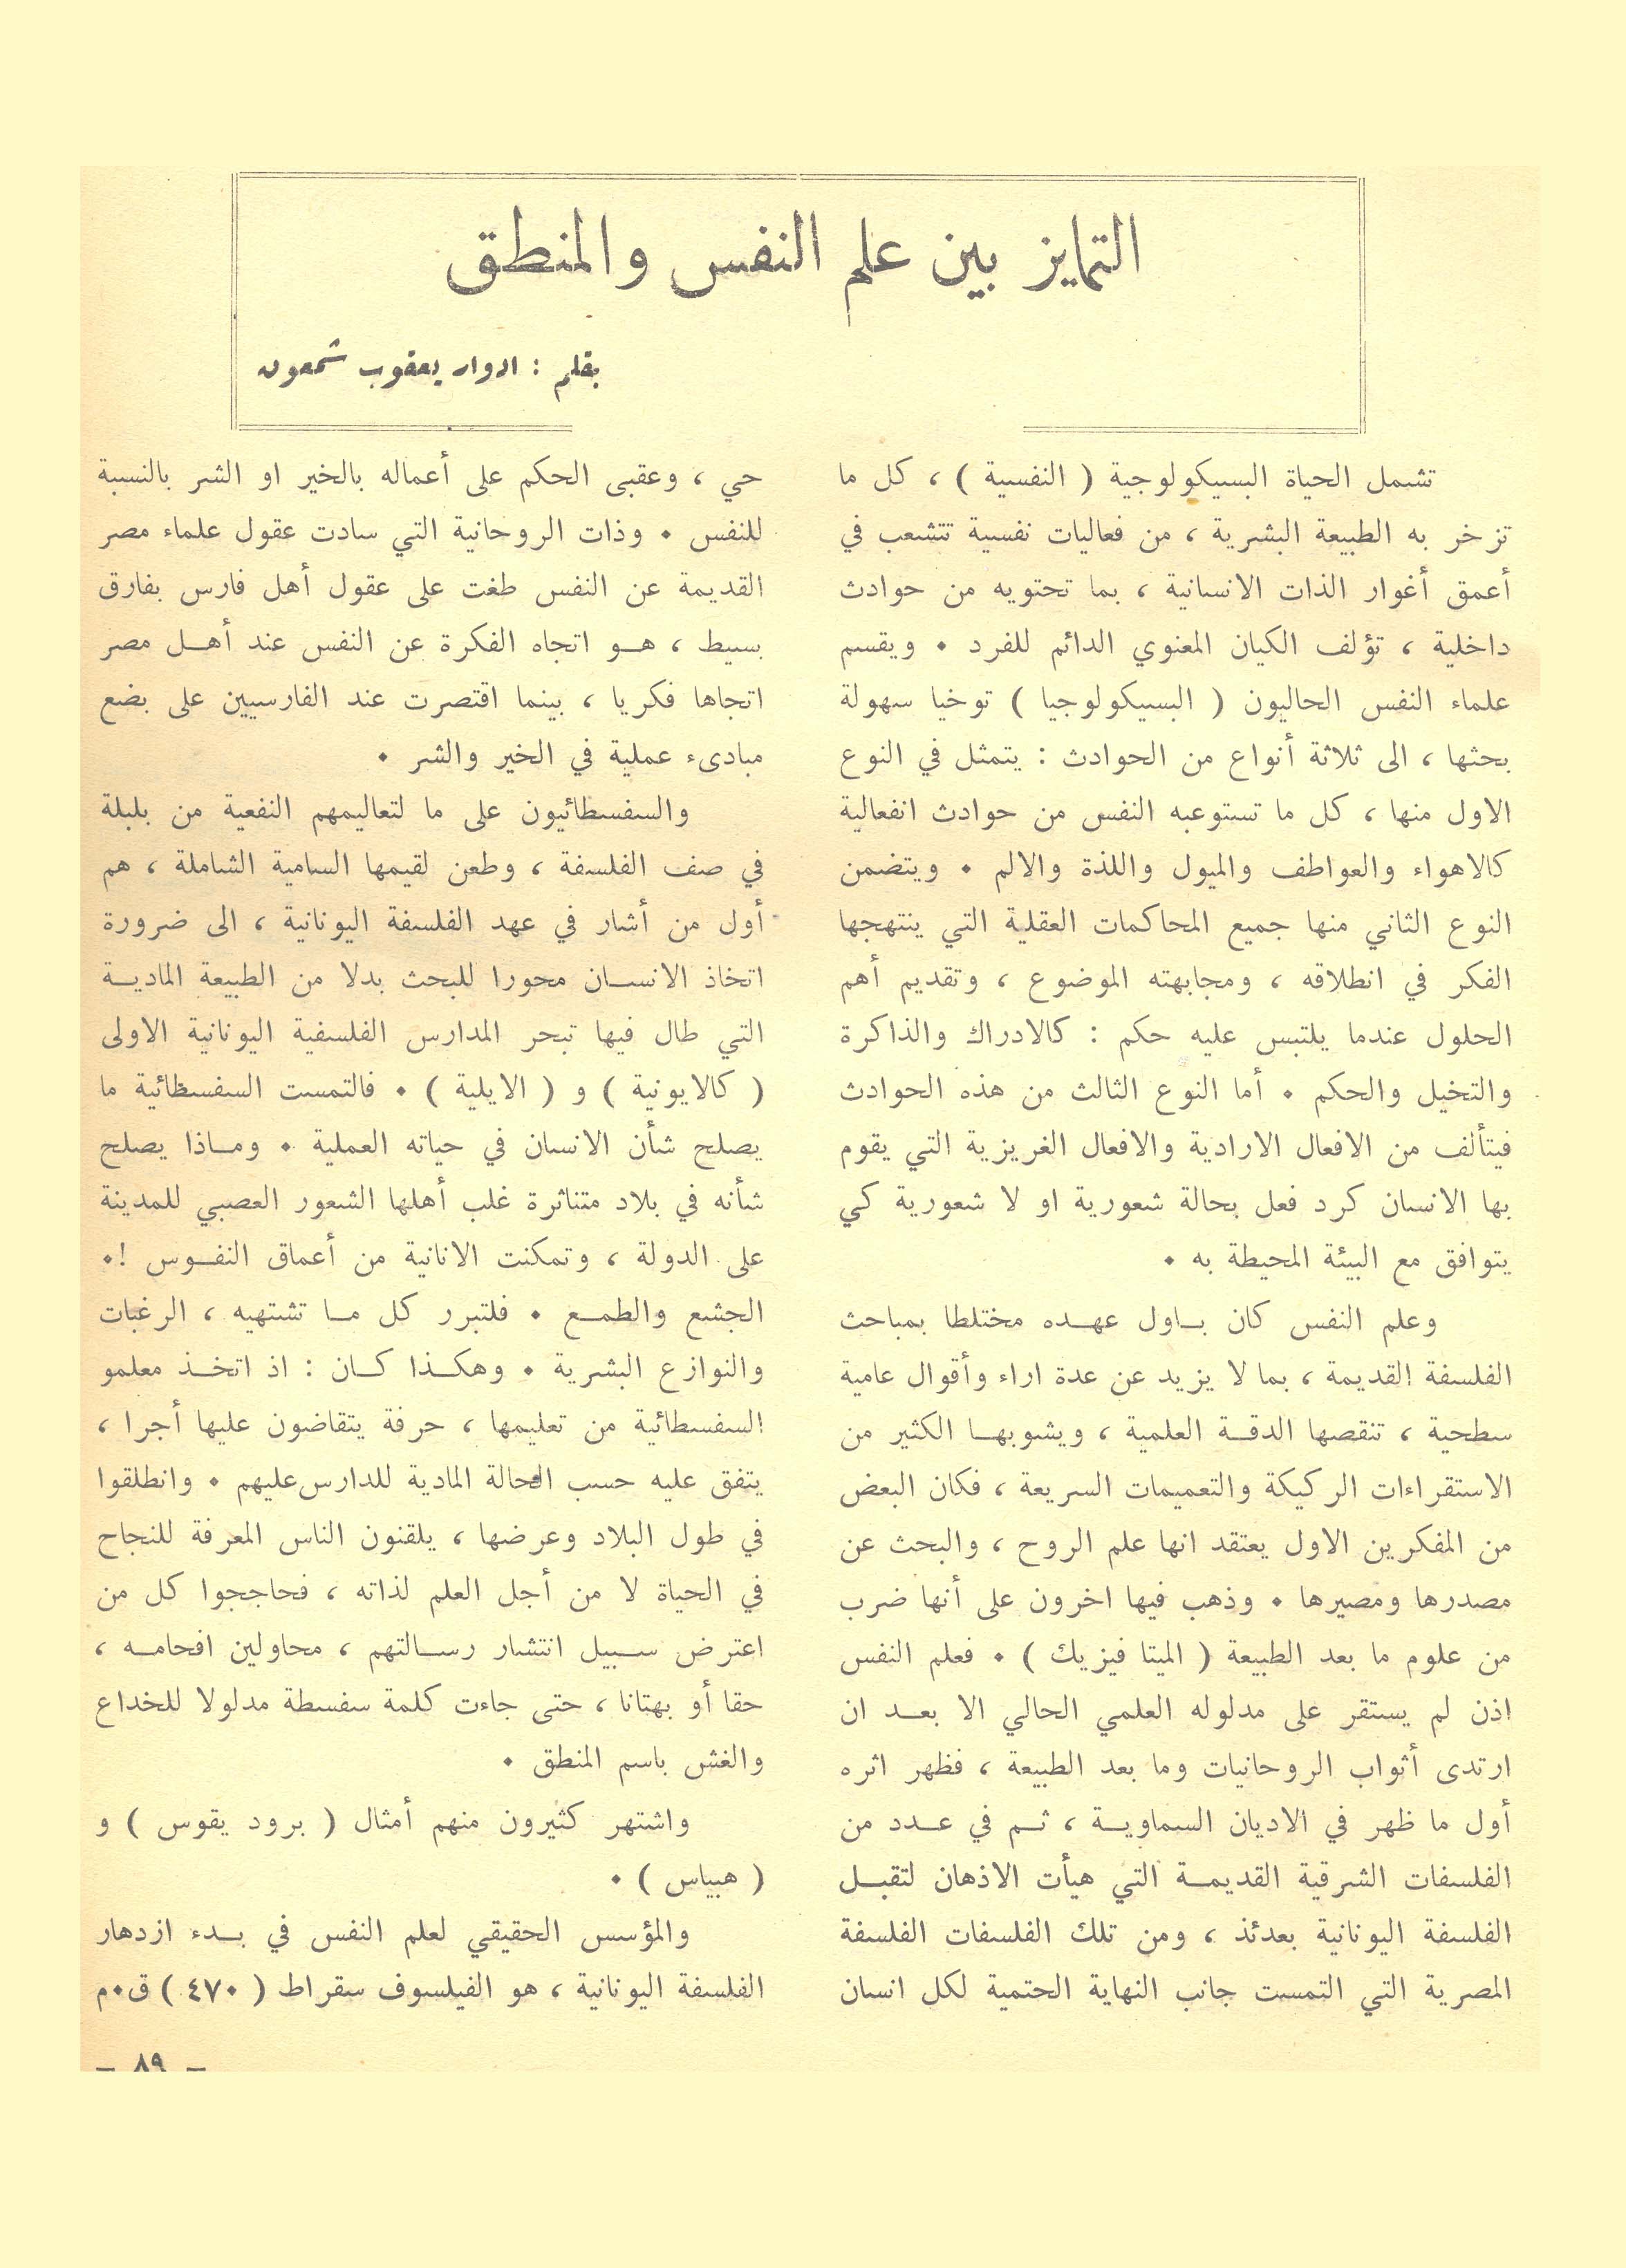 التمايز بين علم النفس والمنطق
بقلم : ادوار يعقوب شمعون
تشمل الحياة البسيكولوجية ( النفسية ) ، كل ما
تزخر به الطبيعة البشرية ، من فعاليات نفسية تتشعب في
أعمق أغوار الذات الانسانية ، بما تحتويه من حوادث
داخلية ، تؤلف الكيان المعنوي الدائم للفرد ٠ ويقسم
علماء النفس الحاليون ( البسيكولوجيا ) توخيا سهولة
بحثها ، الى ثلاثة أنواع من الحوادث : يتمثل في النوع
الاول منها ، كل ما تستوعبه النفس من حوادث انفعالية
كالاهواء والعواطف والميول واللذة والالم ٠ ويتضمن
النوع الثاني منها جميع المحاكمات العقلية التي ينتهجها
الفكر في انطلاقه ، ومجابهته الموضوع ، وتقديم أهم
الحلول عندما يلتبس عليه حكم : كالادراك والذاكرة
والتخيل والحكم ٠ أما النوع الثالث من هذه الحوادث
فيتألف من الافعال الارادية والافعال الغريزية التي يقوم
بها الانسان كرد فعل بحالة شعورية او لا شعورية كي
يتوافق مع البيئة المحيطة به ٠
وعلم النفس كان باول عهده مختلطا بمباحث
الفلسفة القديمة ، بما لا يزيد عن عدة اراء وأقوال عامية
سطحية ، تنقصها الدقة العلمية ، ويشوبها الكثير من
الاستقراءات الركيكة والتعميمات السريعة ، فكان البعض
من المفكرين الاول يعتقد انها علم الروح ، والبحث عن
مصدرها ومصيرها ٠ وذهب فيها اخرون على أنها ضرب
من علوم ما بعد الطبيعة ( الميتا فيزيك ) ٠ فعلم النفس
اذن لم يستقر على مدلوله العلمي الحالي الا بعد ان
ارتدى أثواب الروحانيات وما بعد الطبيعة ، فظهر اثره
أول ما ظهر في الاديان السماوية ، ثم في عدد من
الفلسفات الشرقية القديمة التي هيأت الاذهان لتقبل
الفلسفة اليونانية بعدئذ ، ومن تلك الفلسفات الفلسفة
المصرية التي التمست جانب النهاية الحتمية لكل انسان
حي ، وعقبى الحكم على أعماله بالخير او الشر بالنسبة
للنفس ٠ وذات الروحانية التي سادت عقول علماء مصر
القديمة عن النفس طغت على عقول أهل فارس بفارق
بسيط ، هو اتجاه الفكرة عن النفس عند أهل مصر
اتجاها فكريا ، بينما اقتصرت عند الفارسيين على بضع
مبادىء عملية في الخير والشر ٠
والسفسطائيون على ما لتعاليمهم النفعية من بلبلة
في صف الفلسفة ، وطعن لقيمها السامية الشاملة ، هم
أول من أشار في عهد الفلسفة اليونانية ، الى ضرورة
اتخاذ الانسان محورا للبحث بدلا من الطبيعة المادية
التي طال فيها تبحر المدارس الفلسفية اليونانية الاولى
( كالايونية ) و ( الايلية ) ٠ فالتمست السفسطائية ما
يصلح شأن الانسان في حياته العملية ٠ وماذا يصلح
شأنه في بلاد متناثرة غلب أهلها الشعور العصبي للمدينة
على الدولة ، وتمكنت الانانية من أعماق النفوس !٠
الجشع والطمع ٠ فلتبرر كل ما تشتهيه ، الرغبات
والنوازع البشرية ٠ وهكذا كان : اذ اتخذ معلمو
السفسطائية من تعليمها ، حرفة يتقاضون عليها أجرا ،
يتفق عليه حسب الحالة المادية للدارس عليهم ٠ وانطلقوا
في طول البلاد وعرضها ، يلقنون الناس المعرفة للنجاح
في الحياة لا من أجل العلم لذاته ، فحاججوا كل من
اعترض سبيل انتشار رسالتهم ، محاولين افحامه ،
حقا أو بهتانا ، حتى جاءت كلمة سفسطة مدلولا للخداع
والغش باسم المنطق ٠
واشتهر كثيرون منهم أمثال ( برود يقوس ) و
( هبياس ) ٠
والمؤسس الحقيقي لعلم النفس في بدء ازدهار
الفلسفة اليونانية ، هو الفيلسوف سقراط ( ٤٧٠ ) ق٠م
– ٨٩ –